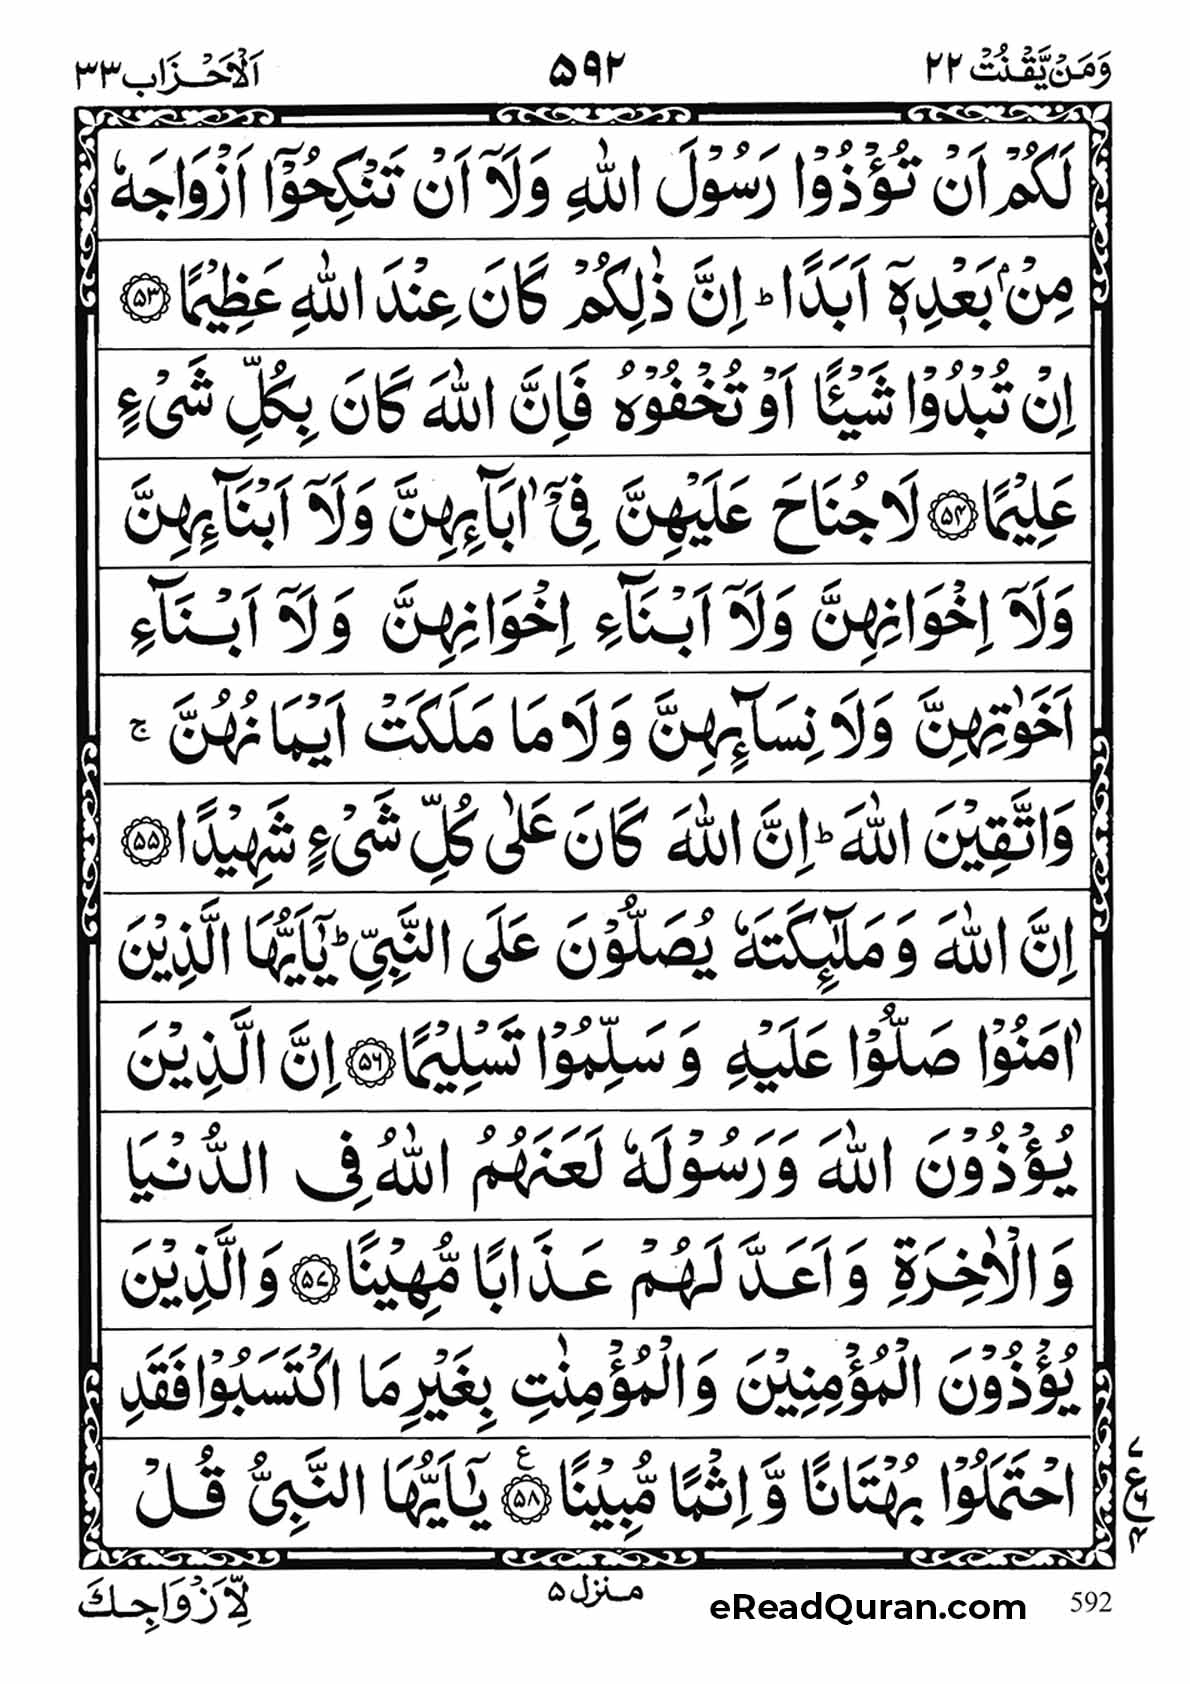 وَمَنْ يَّقْنُتْ ۲۲ ۵۹۲ اَلْاَحْزَاب ۳۳
لَكُمْ اَنْ تُؤْذُوْا رَسُوْلَ اللّٰهِ وَلَاۤ اَنْ تَنْكِحُوْۤا اَزْوَاجَهٗ
مِنْۢ بَعْدِهٖۤ اَبَدًا ؕ اِنَّ ذٰلِكُمْ كَانَ عِنْدَ اللّٰهِ عَظِيْمًا ۝۵۳
اِنْ تُبْدُوْا شَيْـًٔا اَوْ تُخْفُوْهُ فَاِنَّ اللّٰهَ كَانَ بِكُلِّ شَیْءٍ
عَلِيْمًا ۝۵۴ لَا جُنَاحَ عَلَيْهِنَّ فِیْۤ اٰبَآىِٕهِنَّ وَلَاۤ اَبْنَآىِٕهِنَّ
وَلَاۤ اِخْوَانِهِنَّ وَلَاۤ اَبْنَآءِ اِخْوَانِهِنَّ وَلَاۤ اَبْنَآءِ
اَخَوٰتِهِنَّ وَلَا نِسَآىِٕهِنَّ وَلَا مَا مَلَكَتْ اَيْمَانُهُنَّ ۚ
وَاتَّقِيْنَ اللّٰهَ ؕ اِنَّ اللّٰهَ كَانَ عَلٰى كُلِّ شَیْءٍ شَهِيْدًا ۝۵۵
اِنَّ اللّٰهَ وَمَلٰٓىِٕكَتَهٗ يُصَلُّوْنَ عَلَى النَّبِیِّ ؕ يٰۤاَيُّهَا الَّذِيْنَ
اٰمَنُوْا صَلُّوْا عَلَيْهِ وَسَلِّمُوْا تَسْلِيْمًا ۝۵۶ اِنَّ الَّذِيْنَ
يُؤْذُوْنَ اللّٰهَ وَرَسُوْلَهٗ لَعَنَهُمُ اللّٰهُ فِی الدُّنْيَا
وَالْاٰخِرَةِ وَاَعَدَّ لَهُمْ عَذَابًا مُّهِيْنًا ۝۵۷ وَالَّذِيْنَ
يُؤْذُوْنَ الْمُؤْمِنِيْنَ وَالْمُؤْمِنٰتِ بِغَيْرِ مَا اكْتَسَبُوْا فَقَدِ
احْتَمَلُوْا بُهْتَانًا وَّاِثْمًا مُّبِيْنًا ۝۵۸ ع يٰۤاَيُّهَا النَّبِیُّ قُلْ
ع
لِّاَزْوَاجِكَ منزل ۵ eReadQuran.com 592